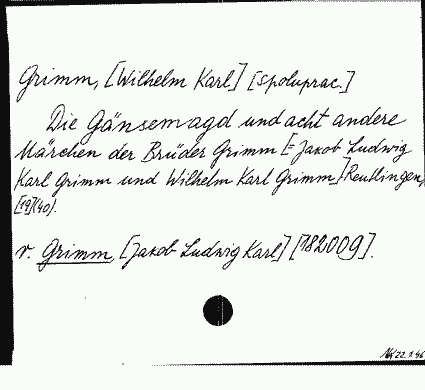 Grimm, [Wilhelm Karl] [spoluprac.]
Die Gänsemagd und acht andere
Märchen der Brüder Grimm [= Jakob Ludwig
Karl Grimm und Wilhelm Karl Grimm.] Reutlingen,
[19](40).
v. Grimm, [Jakob Ludwig Karl] [182009].